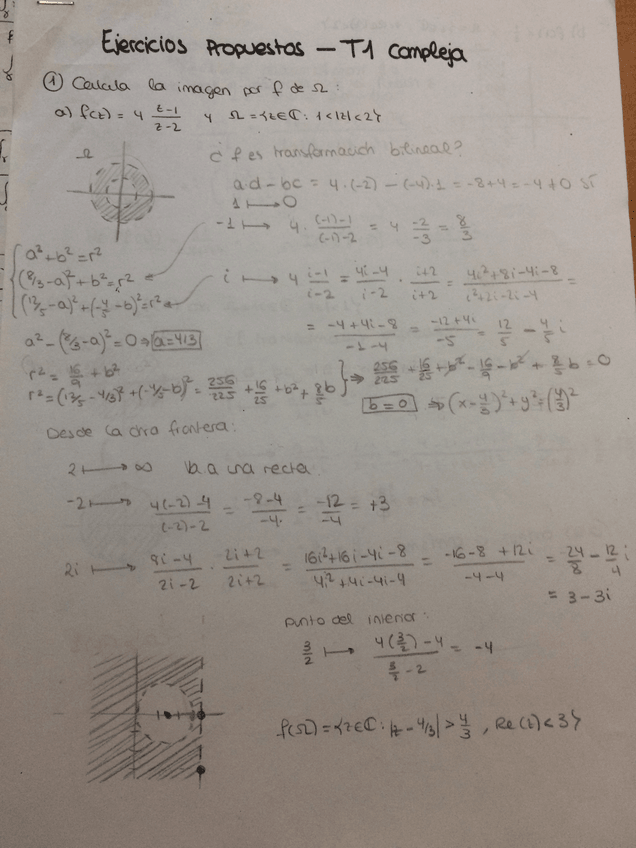 Ejercicios Propuestos — T1 Compleja
① Calcula la imagen por f de Ω:
a) f(z) = 4 \frac{z-1}{z-2} y Ω = {z∈ℂ: 1<|z|<2}
Ω
¿ f es transformación bilineal?
a·d − bc = 4·(-2) − (-4)·1 = -8+4 = -4 ≠ 0 Sí
1 ↦ 0
-1 ↦ 4 · \frac{(-1)-1}{(-1)-2} = 4 \frac{-2}{-3} = \frac{8}{3}
a² + b² = r²
(8/3 - a)² + b² = r²
(12/5 - a)² + (-4/5 - b)² = r²
i ↦ 4 \frac{i-1}{i-2} = \frac{4i-4}{i-2} · \frac{i+2}{i+2} = \frac{4i²+8i-4i-8}{i²+2i-2i-4} =
= \frac{-4+4i-8}{-1-4} = \frac{-12+4i}{-5} = \frac{12}{5} - \frac{4}{5} i
a² - (8/3 - a)² = 0 ⇒ a = 4/3
r² = \frac{16}{9} + b²
r² = (12/5 - 4/3)² + (-4/5 - b)² = \frac{256}{225} + \frac{16}{25} + b² + \frac{8}{5} b
⇒ \frac{256}{225} + \frac{16}{25} + b² - \frac{16}{9} - b² + \frac{8}{5} b = 0
b = 0 ⇒ (x - \frac{4}{3})² + y² = (\frac{4}{3})²
Desde la otra frontera:
2 ↦ ∞ Va a una recta
-2 ↦ \frac{4(-2)-4}{(-2)-2} = \frac{-8-4}{-4} = \frac{-12}{-4} = +3
2i ↦ \frac{8i-4}{2i-2} · \frac{2i+2}{2i+2} = \frac{16i²+16i-4i-8}{4i²+4i-4i-4} = \frac{-16-8+12i}{-4-4} = \frac{24}{8} - \frac{12}{4} i
= 3 - 3i
punto del interior:
\frac{3}{2} ↦ \frac{4(\frac{3}{2})-4}{\frac{3}{2}-2} = -4
f(Ω) = {z∈ℂ: |z - 4/3| > \frac{4}{3}, Re(z) < 3}